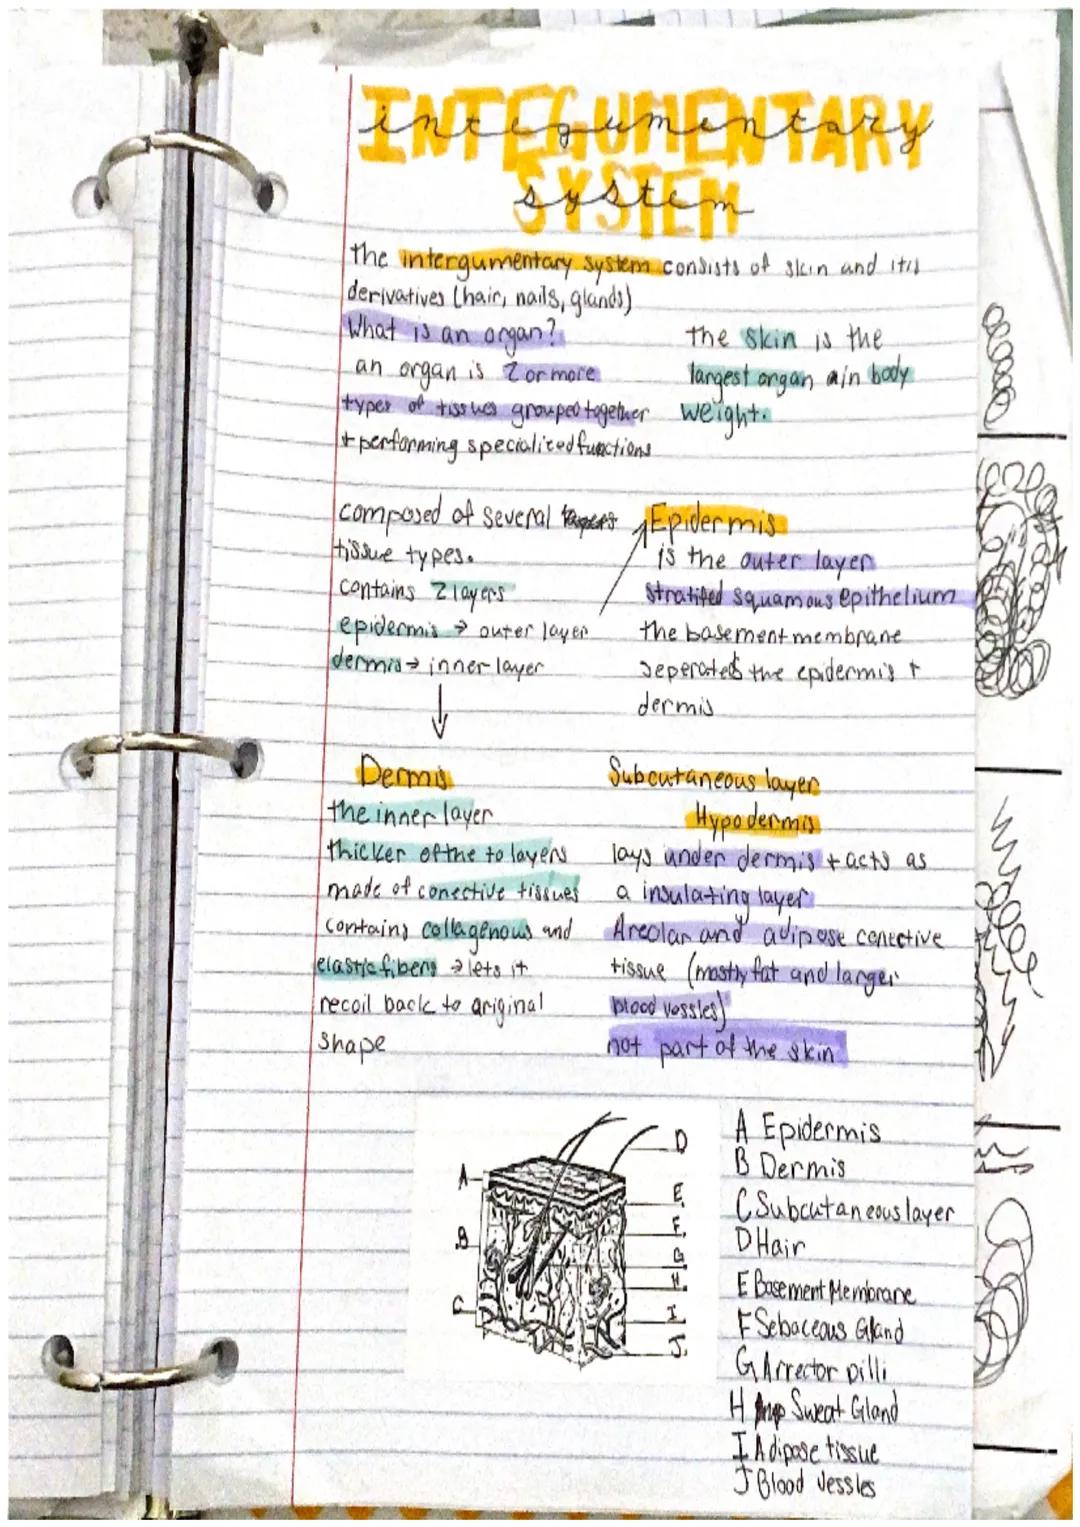 INTEGUMENTARY
integumentary
SYSTEM
system
the intergumentary system consists of skin and it's
derivatives (hair, nails, glands)
What is an organ?
an organ is 2 or more
types of tissues grouped together
+ performing specialized functions
the skin is the
largest organ in body
weight.
composed of several
tissue types.
contains 2 layers
epidermis → outer layer
dermis → inner layer
Epidermis
is the outer layer
stratifed squamous epithelium
the basement membrane
seperates the epidermis +
dermis
Dermis
the inner layer
thicker of the to layers
made of conective tissues
contains collagenous and
elastic fibers → lets it
recoil back to original
shape
Subcutaneous layer
Hypodermis
lays under dermis + acts as
a insulating layer
Areolar and adipose conective
tissue (mostly fat and larger
blood vessles)
not part of the skin
A
B
C
D
E
F
G
H
I
J
A Epidermis
B Dermis
C Subcutaneous layer
D Hair
E Basement Membrane
F Sebaceous Gland
G Arrector pilli
H Sweat Gland
I Adipose tissue
J Blood Vessles